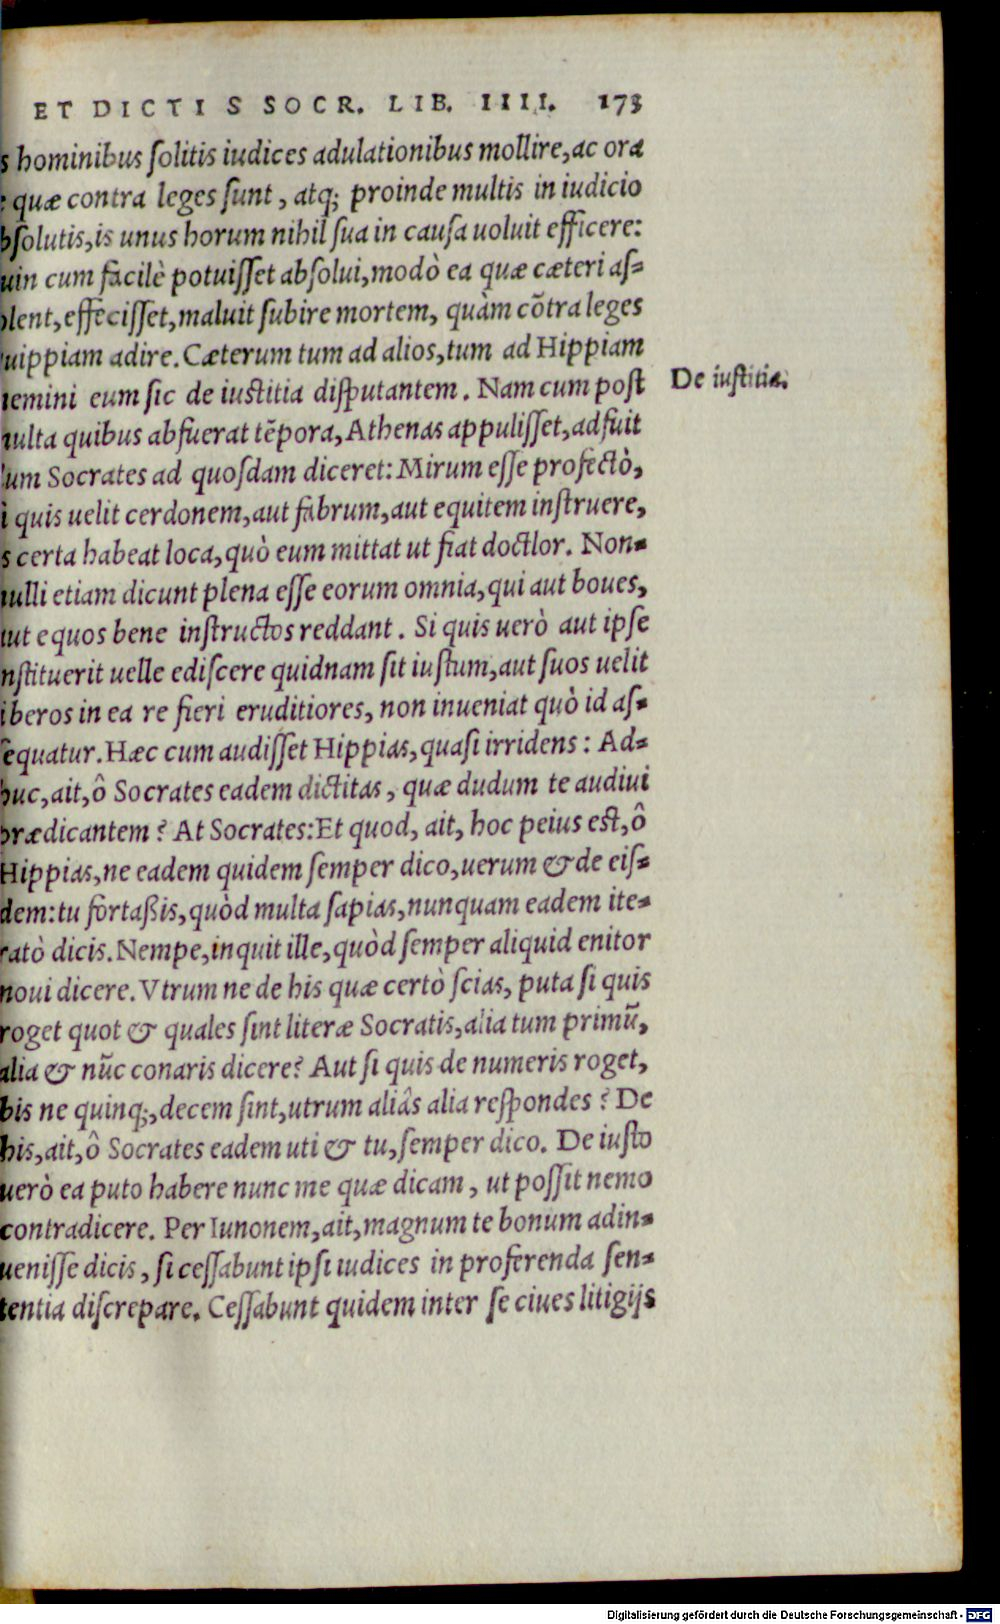 ET DICTIS SOCR. LIB. IIII. 173
s hominibus ſolitis iudices adulationibus mollire, ac ora
quæ contra leges ſunt, atq; proinde multis in iudicio
bſolutis, is unus horum nihil ſua in cauſa uoluit efficere:
uin cum facilè potuiſſet abſolui, modò ea quæ cæteri aſ-
lent, effeciſſet, maluit ſubire mortem, quàm cõtra leges
uippiam adire. Cæterum tum ad alios, tum ad Hippiam
emini eum ſic de iuſtitia diſputantem. Nam cum poſt
De iuſtitia.
ulta quibus abfuerat tẽpora, Athenas appuliſſet, adfuit
um Socrates ad quoſdam diceret: Mirum eſſe profectò,
i quis uelit cerdonem, aut fabrum, aut equitem inſtruere,
s certa habeat loca, quò eum mittat ut fiat doctior. Non-
ulli etiam dicunt plena eſſe eorum omnia, qui aut boues,
ut equos bene inſtructos reddant. Si quis uerò aut ipſe
nſtituerit uelle ediſcere quidnam ſit iuſtum, aut ſuos uelit
iberos in ea re fieri eruditiores, non inueniat quò id aſ-
ſequatur. Hæc cum audiſſet Hippias, quaſi irridens: Ad-
huc, ait, ô Socrates eadem dictitas, quæ dudum te audiui
prædicantem? At Socrates: Et quod, ait, hoc peius eſt, ô
Hippias, ne eadem quidem ſemper dico, uerum & de eiſ-
dem: tu fortaßis, quòd multa ſapias, nunquam eadem ite-
ratò dicis. Nempe, inquit ille, quòd ſemper aliquid enitor
noui dicere. Vtrum ne de his quæ certò ſcias, puta ſi quis
roget quot & quales ſint literæ Socratis, alia tum primũ,
alia & nũc conaris dicere? Aut ſi quis de numeris roget,
bis ne quinq;, decem ſint, utrum aliâs alia reſpondes? De
his, ait, ô Socrates eadem uti & tu, ſemper dico. De iuſto
uerò ea puto habere nunc me quæ dicam, ut poſſit nemo
contradicere. Per Iunonem, ait, magnum te bonum adin-
ueniſſe dicis, ſi ceſſabunt ipſi iudices in proferenda ſen-
tentia diſcrepare. Ceſſabunt quidem inter ſe ciues litigijs
Digitalisierung gefördert durch die Deutsche Forschungsgemeinschaft - DFG